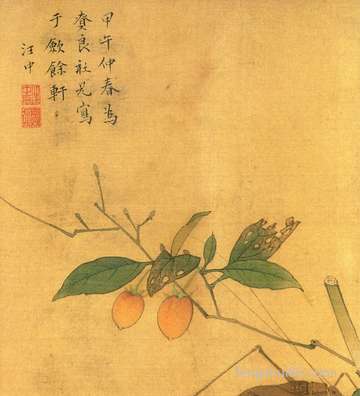 甲午仲春為
賡良社兄寫
于飲餘軒
汪中